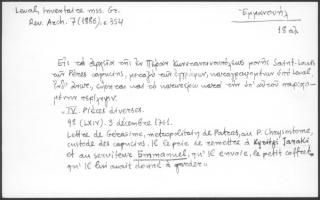 Laval, Inventaire mss. Gr.
Rev. Arch. 7 (1886), σ. 354
Ἐμμανουήλ
18 αἰ.
Εἰς τὰ ἀρχεῖα τῆς ἐν Πέραν Κωνσταντινουπόλεως μονῆς Saint-Louis
τῶν Pères capucins, μεταξὺ τῶν ἐγγράφων, καταγραφομένων ὑπὸ Laval,
ἔνθ' ἀνωτ., καὶ τὸ κατωτέρω κατὰ τὴν ὑπ' αὐτοῦ
περίληψιν.
"IV. Pièces diverses.
92 (LXIV). 3 décembre 1761.
Lettre de Gérasime, métropolitain de Patras, au P. Chrysostome,
custode des capucins. Il le prie de remettre à Kyritzi Janaki
et au serviteur Emmanuel, qu'il envoie, le petit coffret
qu'il lui avait donné à garder"